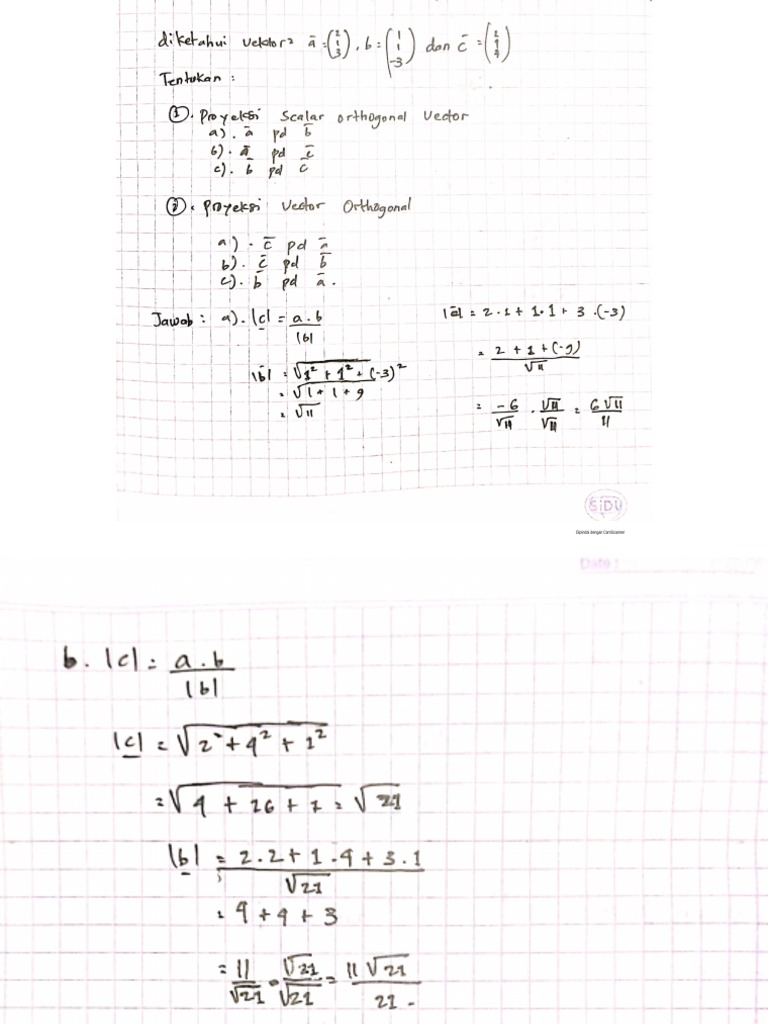 diketahui vektor² ā = (2 1 3), b = (1 1 -3) dan c̄ =
Tentukan :
①. Proyeksi Scalar orthogonal Vector
a). ā pd b̄
b). ā pd c̄
c). b̄ pd c̄
②. Proyeksi Vector Orthogonal
a). c̄ pd ā
b). c̄ pd b̄
c). b̄ pd ā.
Jawab : a). |c| = a.b / |b|
|b̄| = √1² + 1² + (-3)²
= √1 + 1 + 9
= √11
|c̄| = 2.1 + 1.1 + 3.(-3)
= 2 + 1 + (-9) / √11
= -6/√11 . √11/√11 = 6√11/11
SiDU
Dipindai dengan CamScanner
Date :
b. |c| = a.b / |b|
|c| = √2² + 4² + 1²
= √4 + 16 + 1 = √21
|b| = 2.2 + 1.4 + 3.1 / √21
= 4 + 4 + 3
= 11/√21 . √21/√21 = 11√21/21.